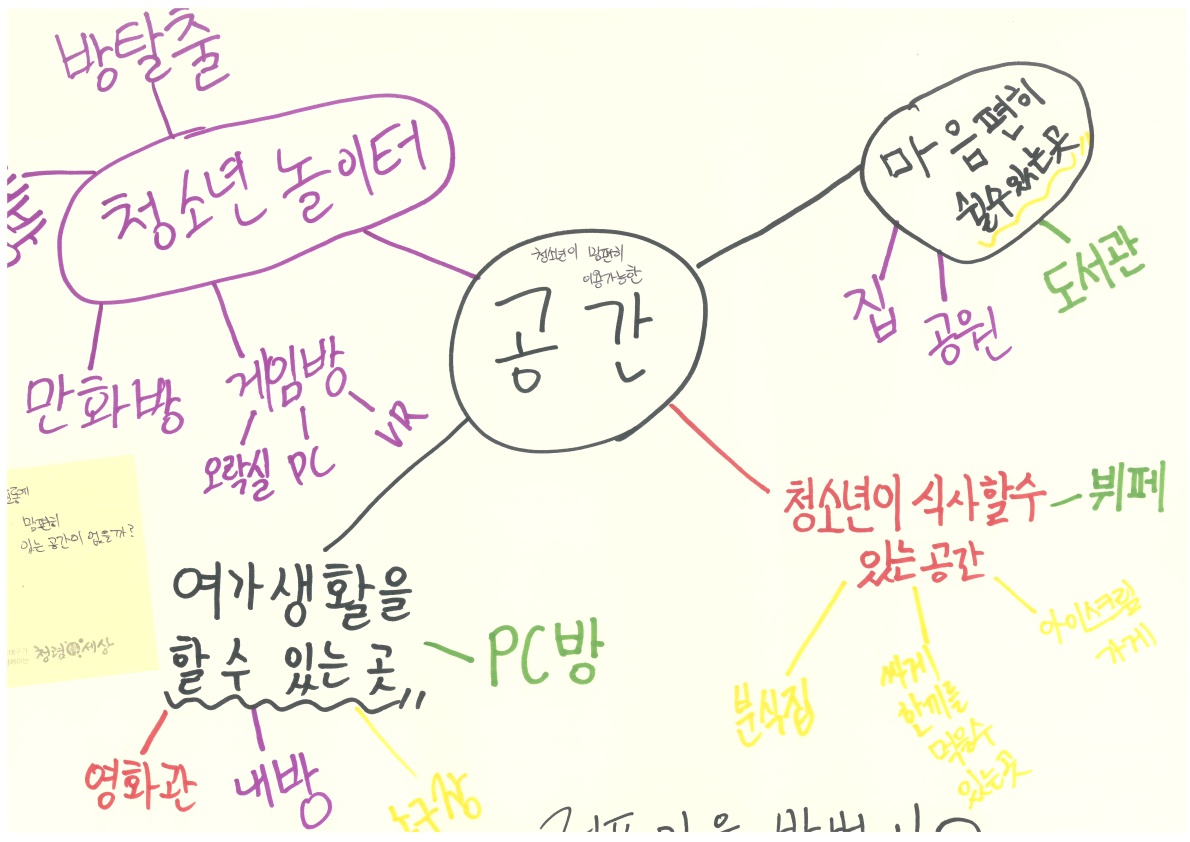 방탈출
청소년 놀이터
만화방
게임방
오락실
PC
VR
청소년이 맘편히
이용가능한
공간
마음편히
쉴수있는곳
집
공원
도서관
맘편히
있는 공간이 없을까?
청렴세상
여가생활을
할 수 있는 곳
PC방
영화관
내방
청소년이 식사할수
있는 공간
뷔페
분식집
싸게
한끼를
먹을수
있는곳
아이스크림
가게